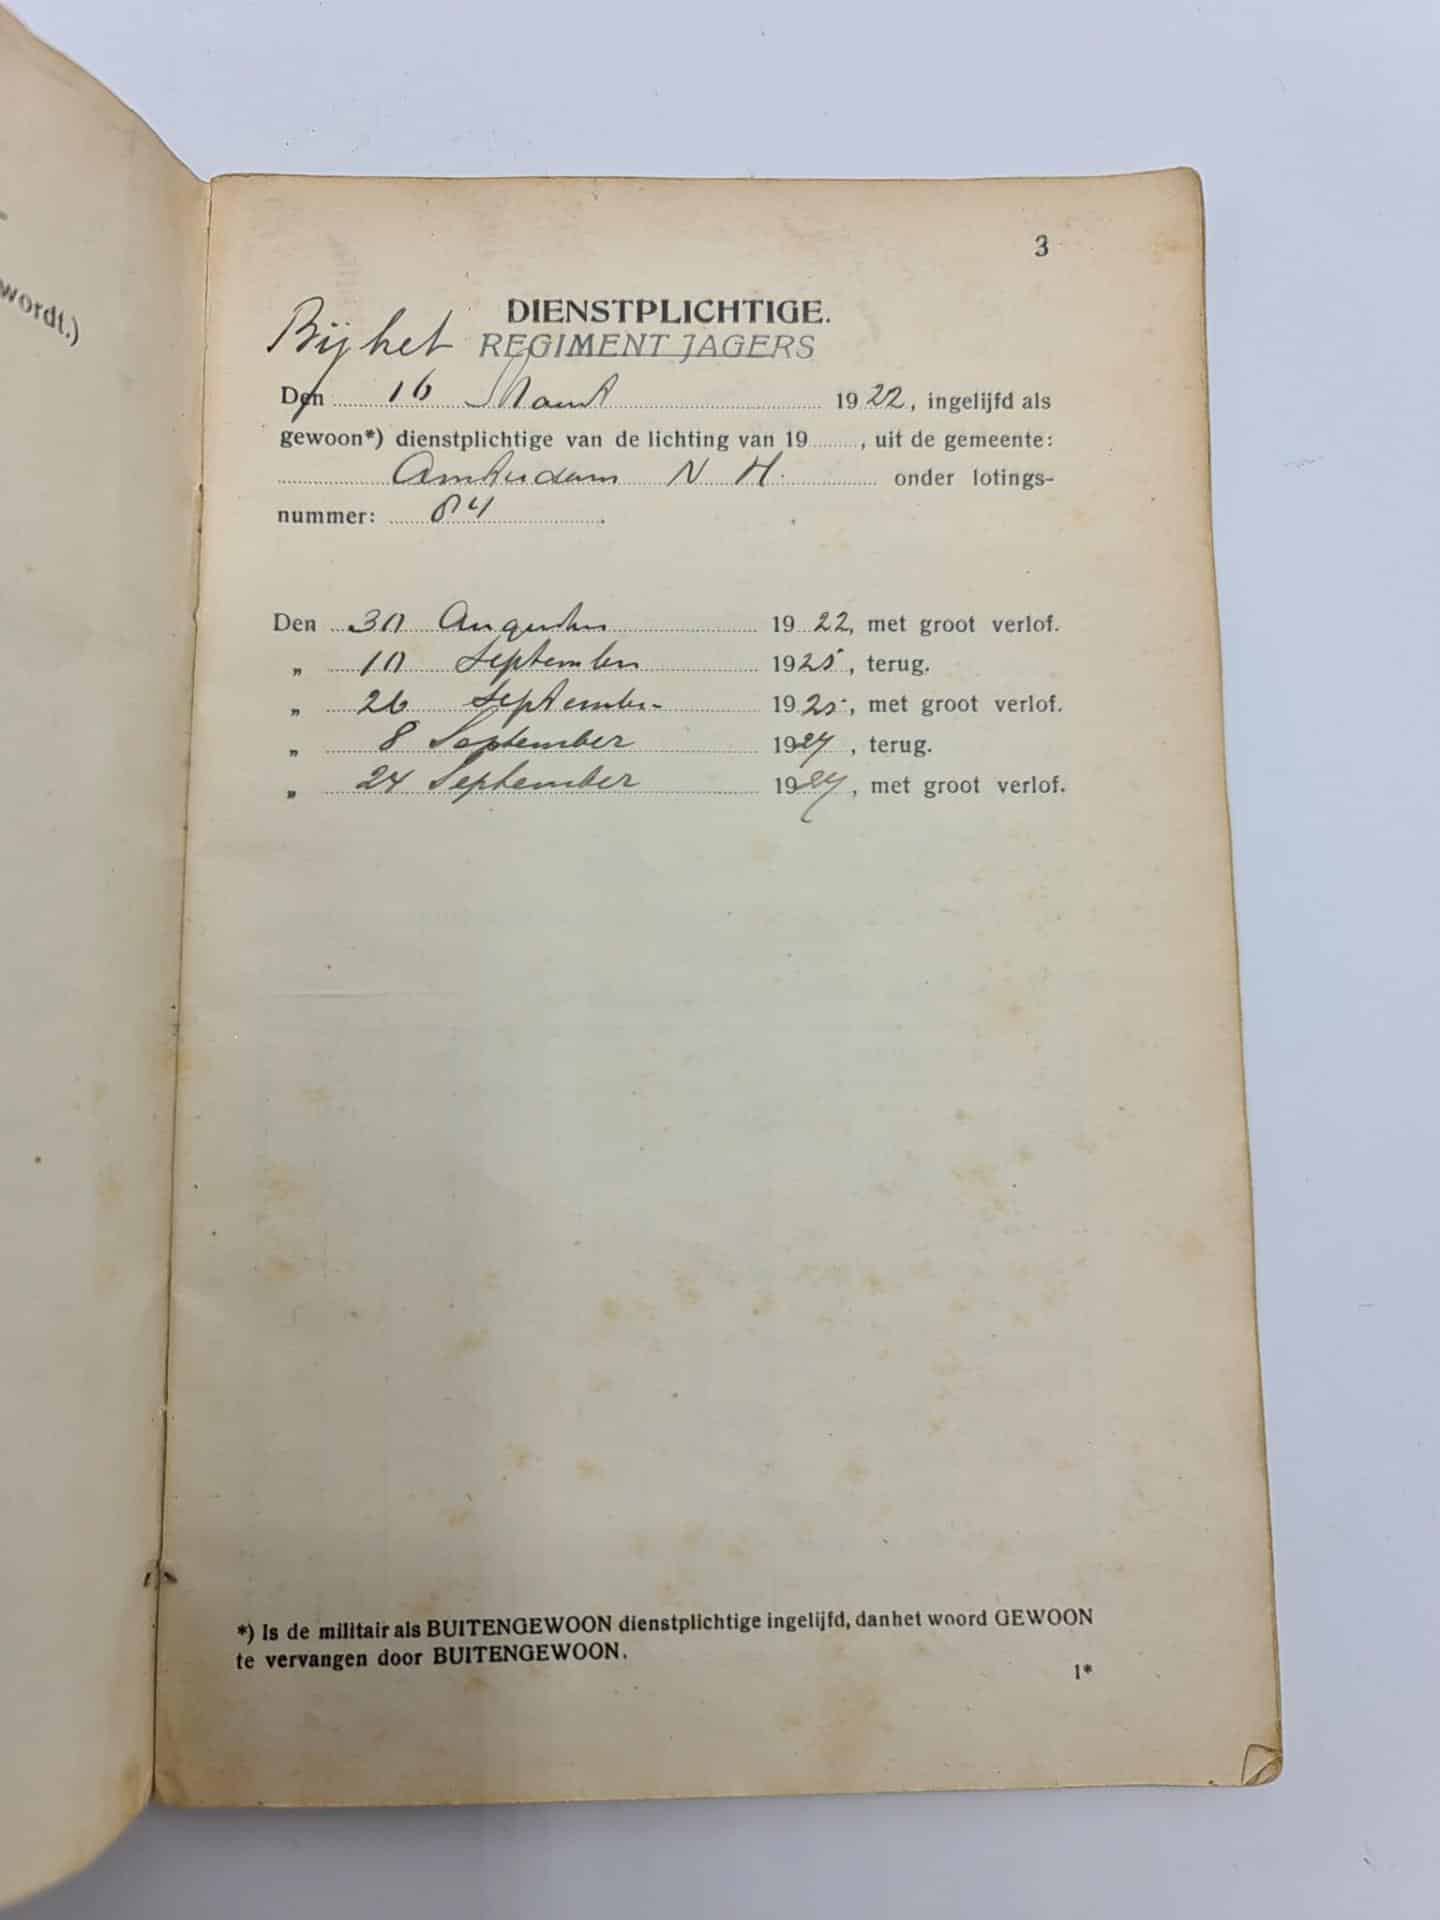 wordt.)
3
DIENSTPLICHTIGE.
Bij het REGIMENT JAGERS
Den 16 Maart 1922, ingelijfd als
gewoon*) dienstplichtige van de lichting van 19........, uit de gemeente:
Amsterdam N H. onder lotings-
nummer: 84
Den 30 Augustus 1922, met groot verlof.
„ 10 September 1925, terug.
„ 26 September 1925, met groot verlof.
„ 8 September 1927, terug.
„ 24 September 1927, met groot verlof.
*) Is de militair als BUITENGEWOON dienstplichtige ingelijfd, dan het woord GEWOON
te vervangen door BUITENGEWOON.
1*